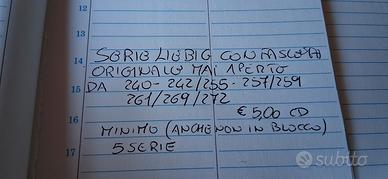 12
14
15
16
17
SERIE LIEBIG CON FASCETTA
ORIGINALE MAI APERTO
DA 240-242/255-257/259
261/269/272
€ 5,00 CD
MINIMO (ANCHE NON IN BLOCCO)
5 SERIE
subito